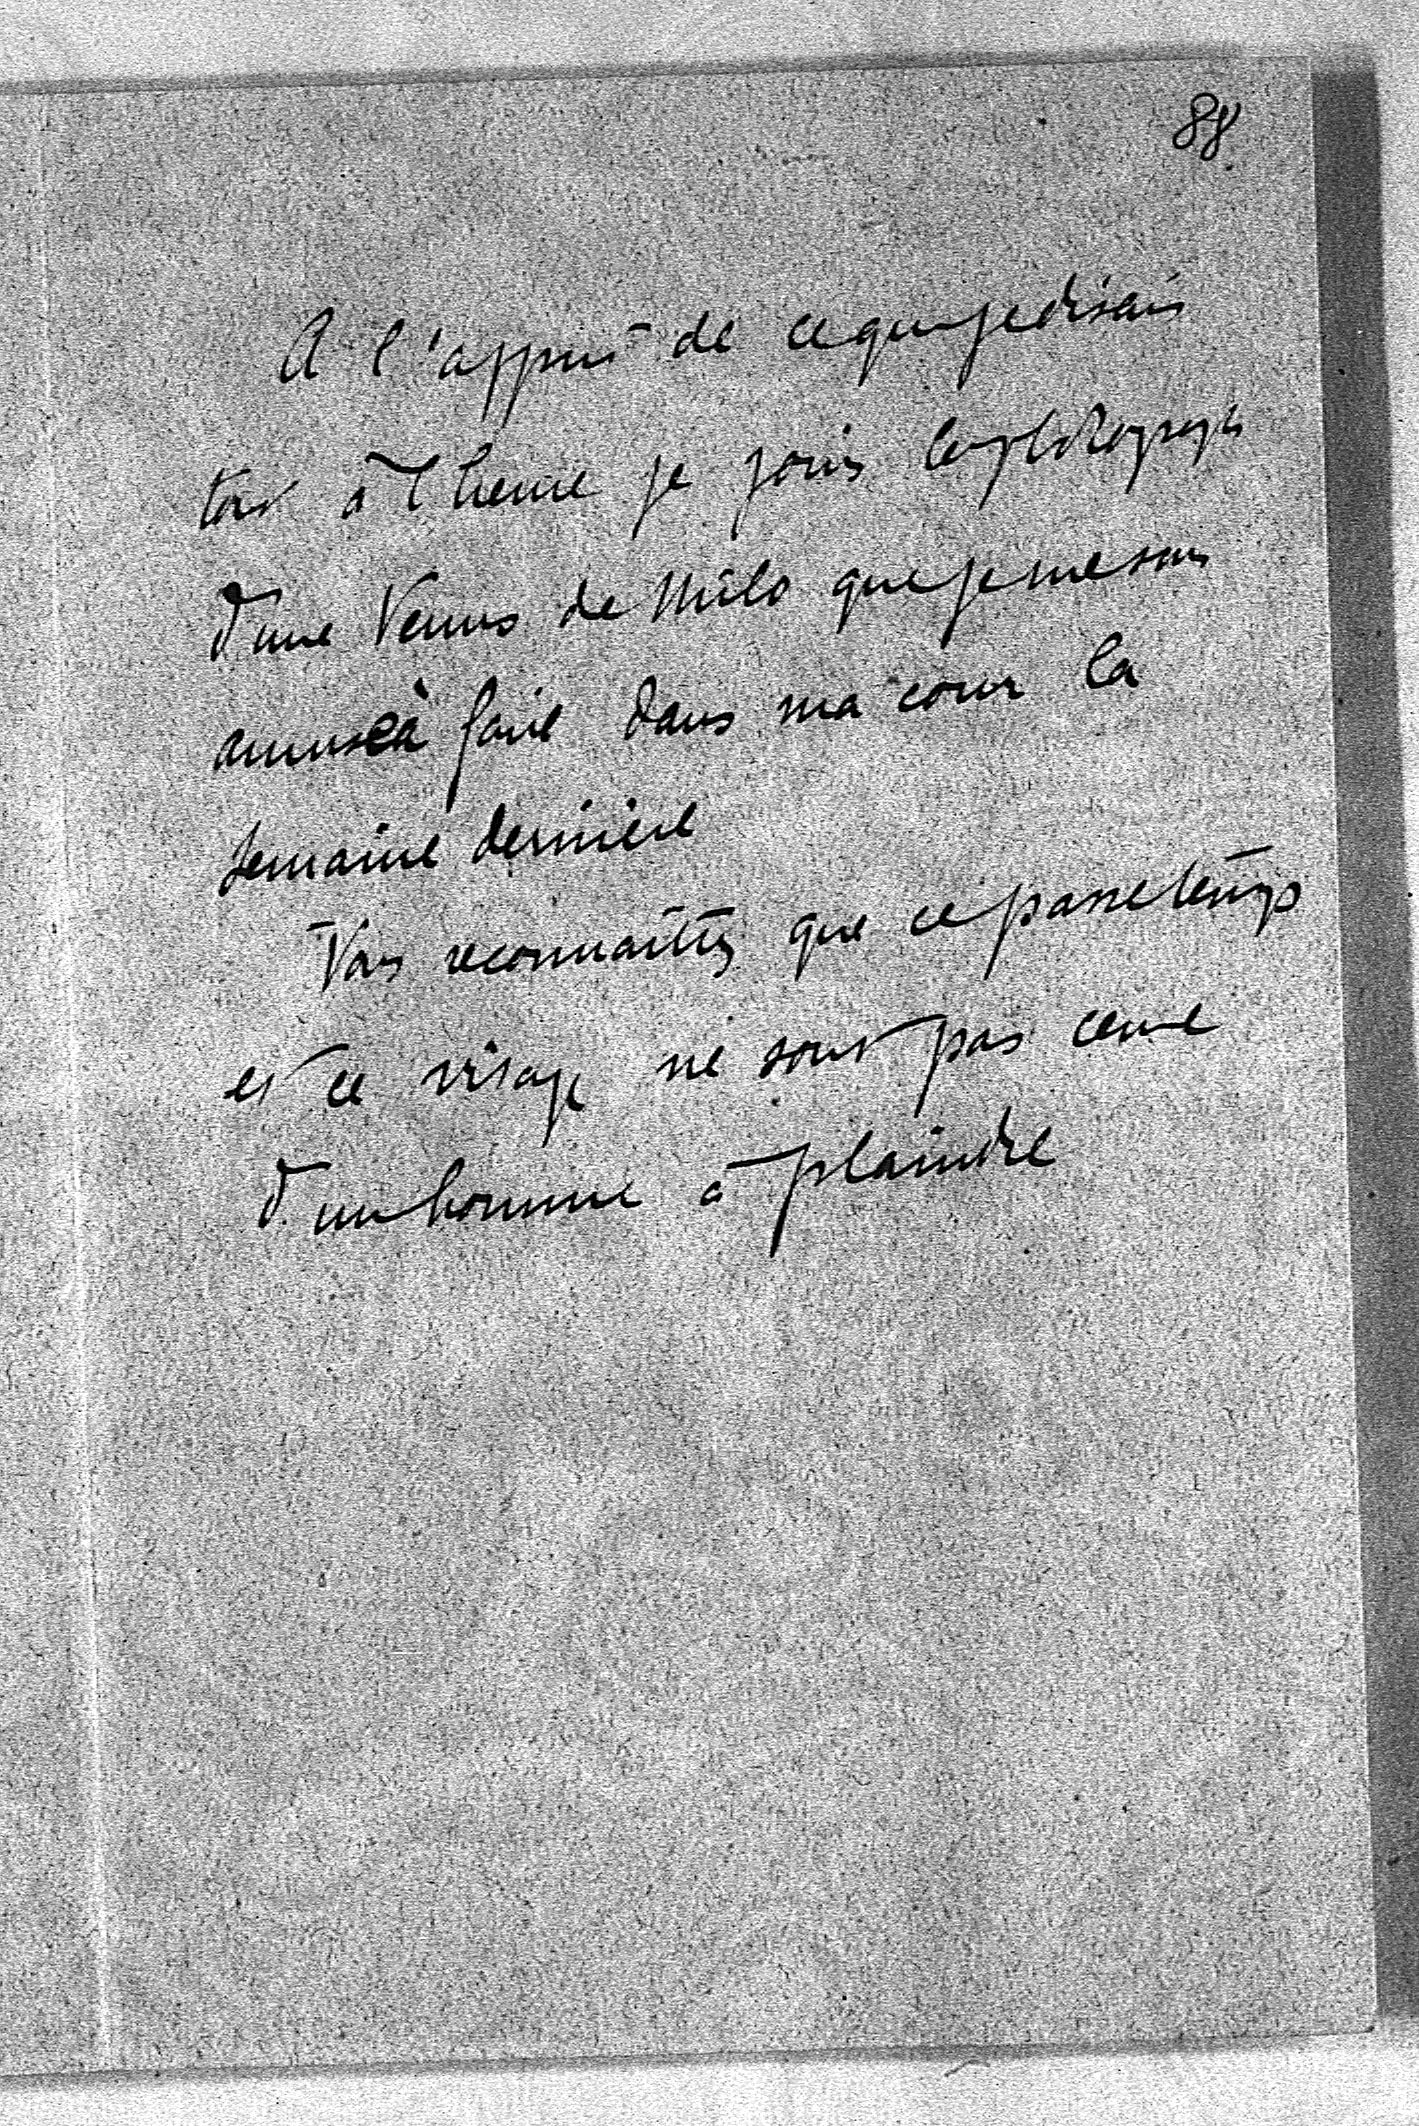 88
A l'appui de ce que je disais
tout à l'heure je joins la photographie
d'une Venus de Milo que je me suis
amusé à faire dans ma cour la
semaine dernière
Vous reconnaîtrez que ce passe temps
et ce visage ne sont pas ceux
d'un homme à plaindre